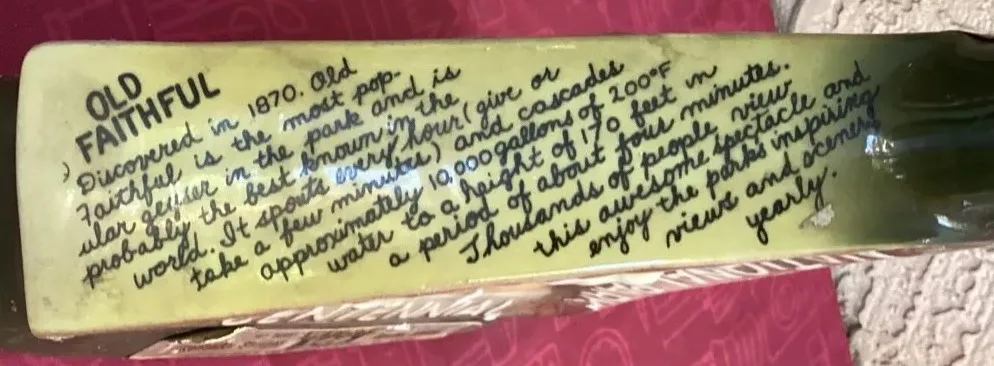 OLD
FAITHFUL
Discovered in 1870. Old
Faithful is the most pop-
ular geyser in the park and is
probably the best known in the
world. It spouts every hour (give or
take a few minutes) and cascades
approximately 10,000 gallons of 200°F
water to a height of 170 feet in
a period of about four minutes.
Thousands of people view
this awesome spectacle and
enjoy the parks inspiring
views and scenery
yearly.
CENTENNIAL